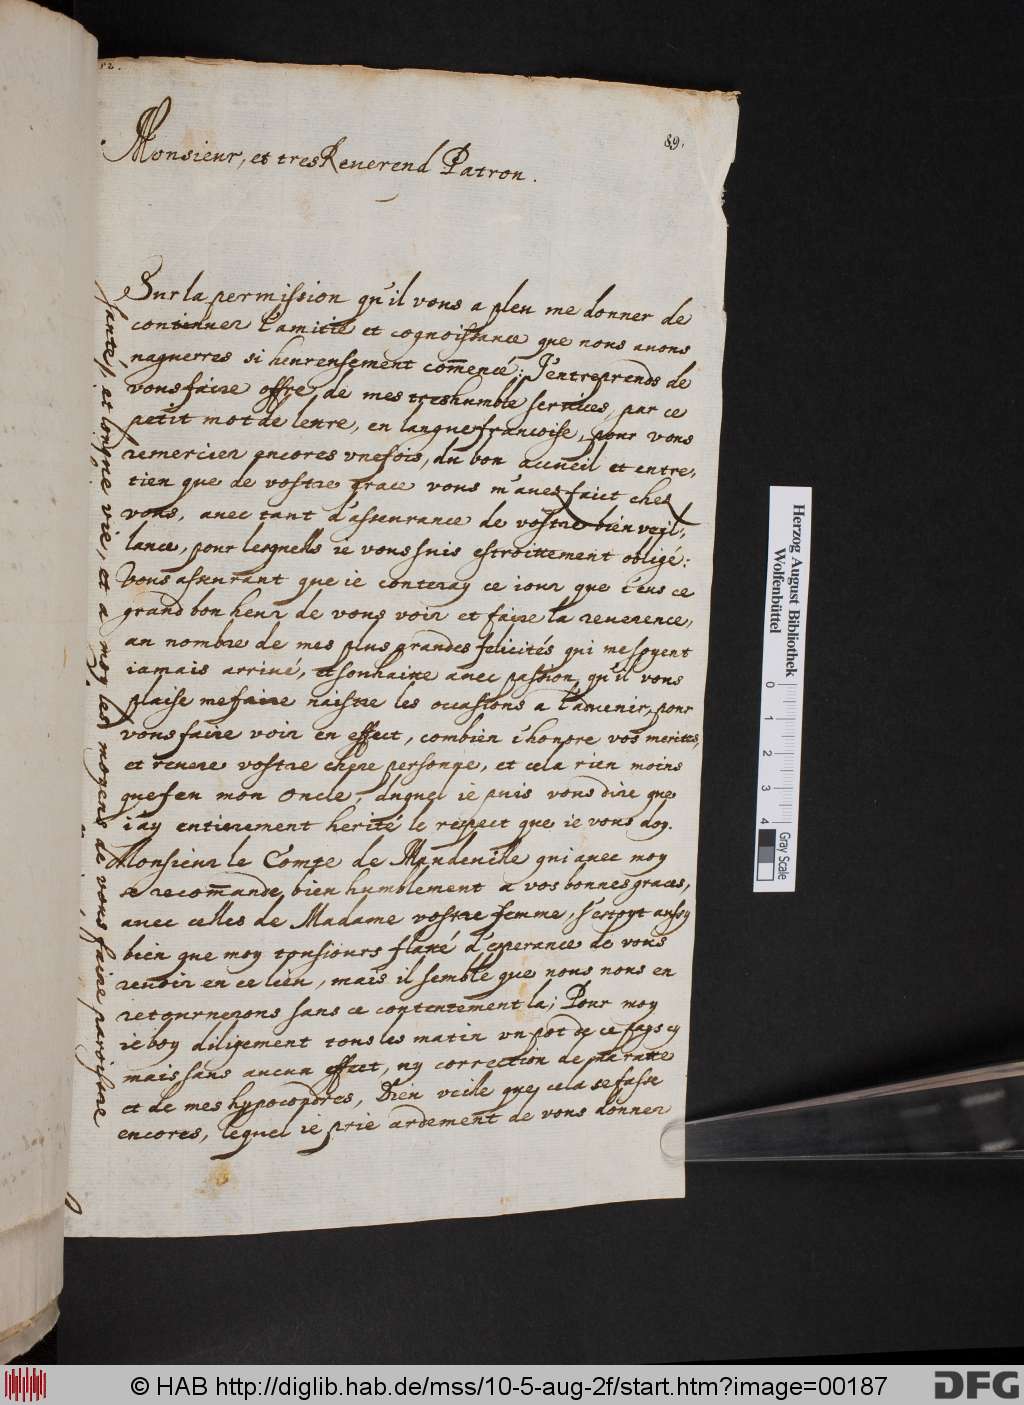 89.
Monsieur, et tres Reverend Patron.
Sur la permission qu'il vous a pleu me donner de
continuer l'amitié et cognoissance que nous auons
naguerres si heureusement comencé: J'entreprends de
vous faire offre, de mes treshumble seruices, par ce
petit mot de lettre, en langue francoise, pour vous
remercier encores vne fois, du bon accueil et entre,
tien que de vostre grace vous m'aues faict ches
vous, auec tant d'asseurance de vostre bien veijl,
lance, pour lesquells ie vous suis estroittement obligé:
Vous asseurant que ie conteray ce iour que i'eus ce
grand bon heur de vous voir et faire la reuerence,
au nombre de mes plus grandes felicités qui me soyent
iamais arriué, et souhaitte auec passion, qu'il vous
plaise me faire naistre les occasions a l'auenir, pour
vous faire voir en effect, combien i'honore vos merites,
et reuere vostre chere personne, et cela rien moins
que feu mon Oncle, duquel ie puis vous dire que
i'ay entierement herité le respect que ie vous doy.
Monsieur le Comte de Mandeville qui auec moy
se recomande bien humblement a vos bonnes graces,
auec celles de Madame vostre femme, s'estoyt aussy
bien que moy tousiours flatté d'esperance de vous
reuoir en ce lieu, mais il semble que nous nous en
retournerons sans ce contentement la; Pour moy
ie boy diligement tous les matin vn pot de ce pays cy
mais sans aucun effect, ny correction de ma ratte
et de mes hypocondres, Dieu veile que cela se fasse
encores, lequel ie prie ardement de vous donner
santé, et longue vie, et a moy les moyens de vous faire paroistre
Herzog August Bibliothek
Wolfenbüttel
0 1 2 3 4
Gray Scale
© HAB http://diglib.hab.de/mss/10-5-aug-2f/start.htm?image=00187
DFG